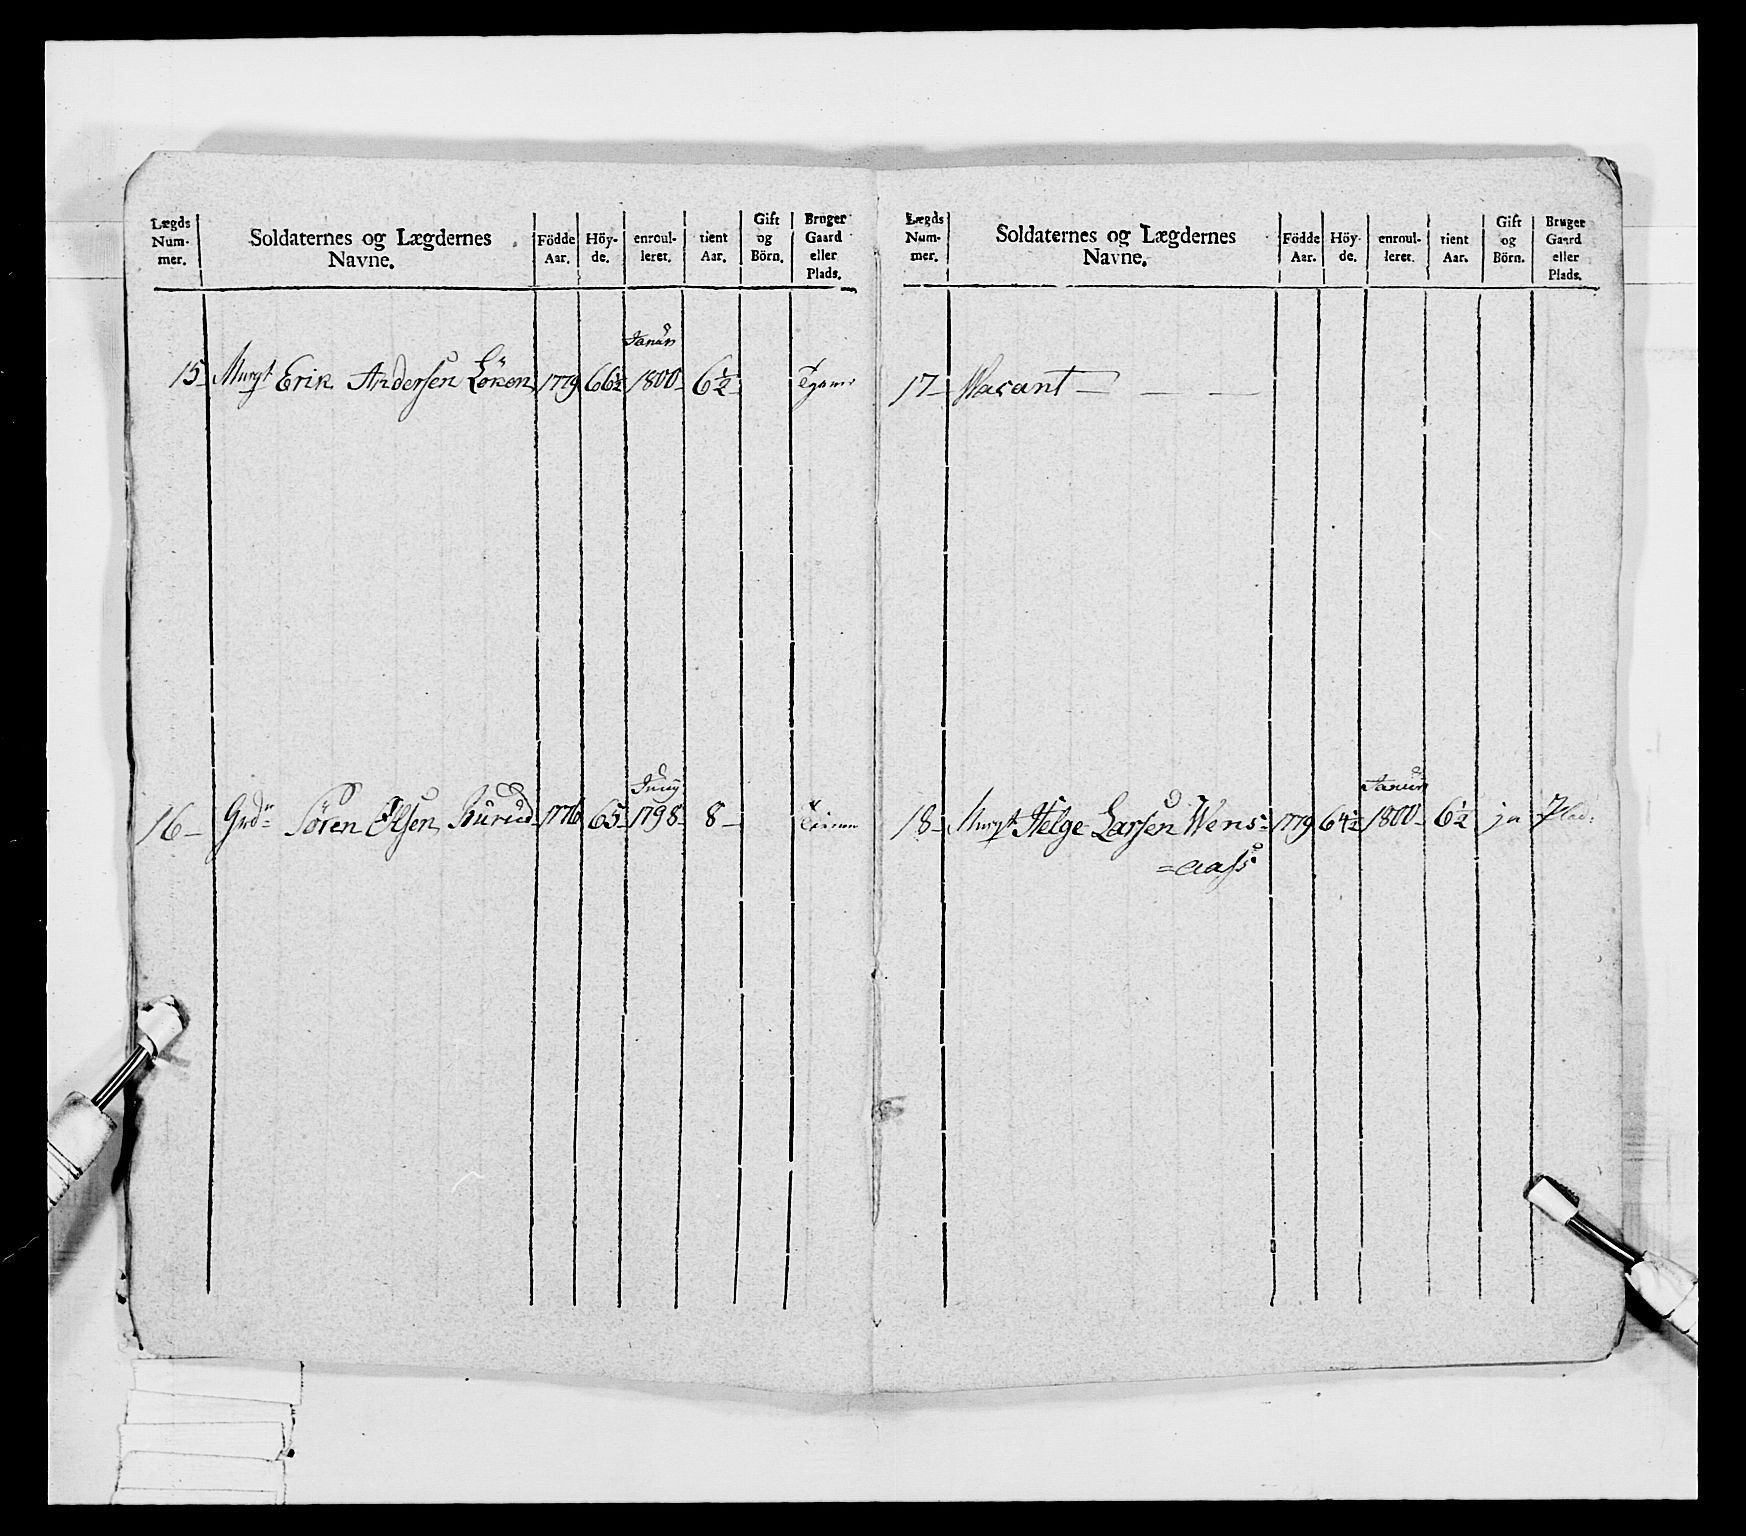 Lægds Num- mer.
Soldaternes og Lægdernes Navne.
Födde Aar.
Höy- de.
enroul- leret.
tient Aar.
Gift og Börn.
Bruger Gaard eller Plads.
Janur
15- Musqt Erik Andersen Löken 1779 66½ 1800- 6½
Juny
16- Grdr Sören Olsen 1776 65- 1798- 8-
Lægds Num- mer.
Soldaternes og Lægdernes Navne.
Födde Aar.
Höy- de.
enroul- leret.
tient Aar.
Gift og Börn.
Bruger Gaard eller Plads.
17- Vacant
Janur
18- Musqt Helge Larsen Wens= 1779 64½ 1800- 6½ ja Plad:
=aass